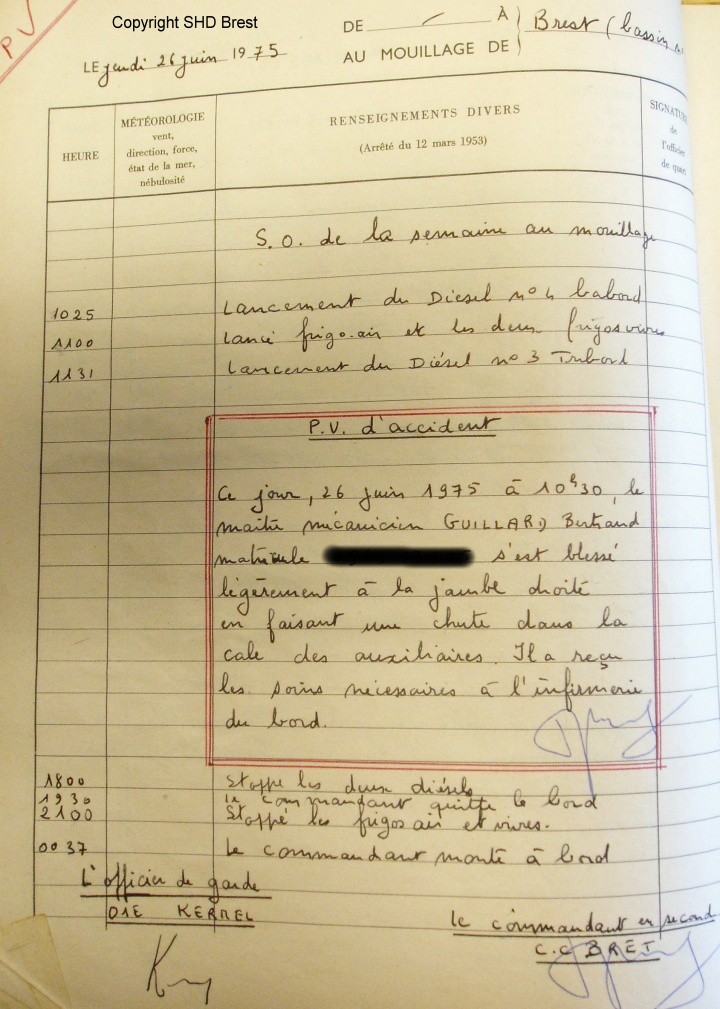 Copyright SHD Brest
PV
DE — À } Brest (bassin n°
LE jeudi 26 juin 1975 AU MOUILLAGE DE
HEURE
MÉTÉOROLOGIE
vent,
direction, force,
état de la mer,
nébulosité
RENSEIGNEMENTS DIVERS
(Arrêté du 12 mars 1953)
SIGNATURE
de
l'officier
de quart
S.O. de la semaine au mouillage
1025 Lancement du Diesel n° 4 babord
1100 lancé frigo-air et les deux frigos vivres
1131 Lancement du Diésel n° 3 Tribord
P.V. d'accident
Ce jour, 26 juin 1975 à 10h30, le
maître mécanicien GUILLARD Bertrand
matricule s'est blessé
légèrement à la jambe droite
en faisant une chute dans la
cale des auxiliaires. Il a reçu
les soins nécessaires à l'infirmerie
du bord.
1800 Stoppé les deux diésels
1930 le commandant quitte le bord
2100 Stoppé les frigos air et vivres.
0037 Le commandant monte à bord
L'officier de garde
O1E KERREL
le commandant en second
C.C BRET